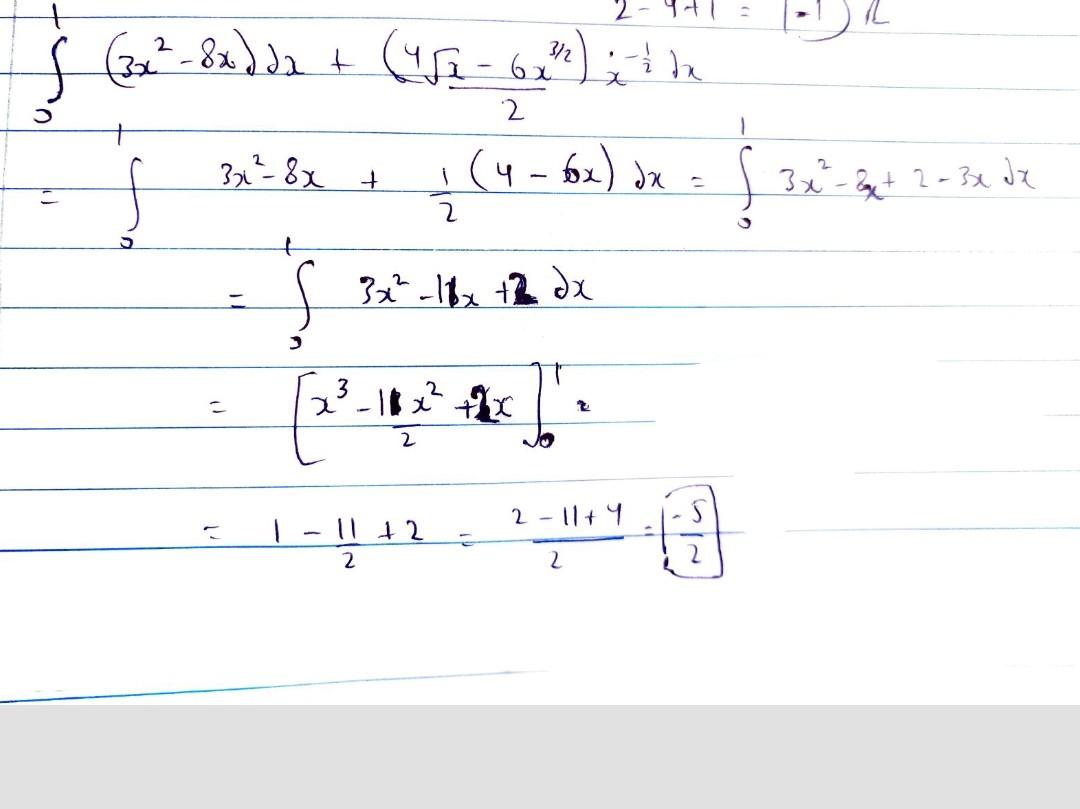 2 - 4 + 1 = -1
∫₀¹ (3x² - 8x) dx + (4√x - 6x^{3/2})/2 · x^{-1/2} dx
= ∫₀¹ 3x² - 8x + 1/2 (4 - 6x) dx = ∫₀¹ 3x² - 8x + 2 - 3x dx
= ∫₀¹ 3x² - 11x + 2 dx
= [x³ - 11x²/2 + 2x]₀¹ =
= 1 - 11/2 + 2 = (2 - 11 + 4)/2 = -5/2